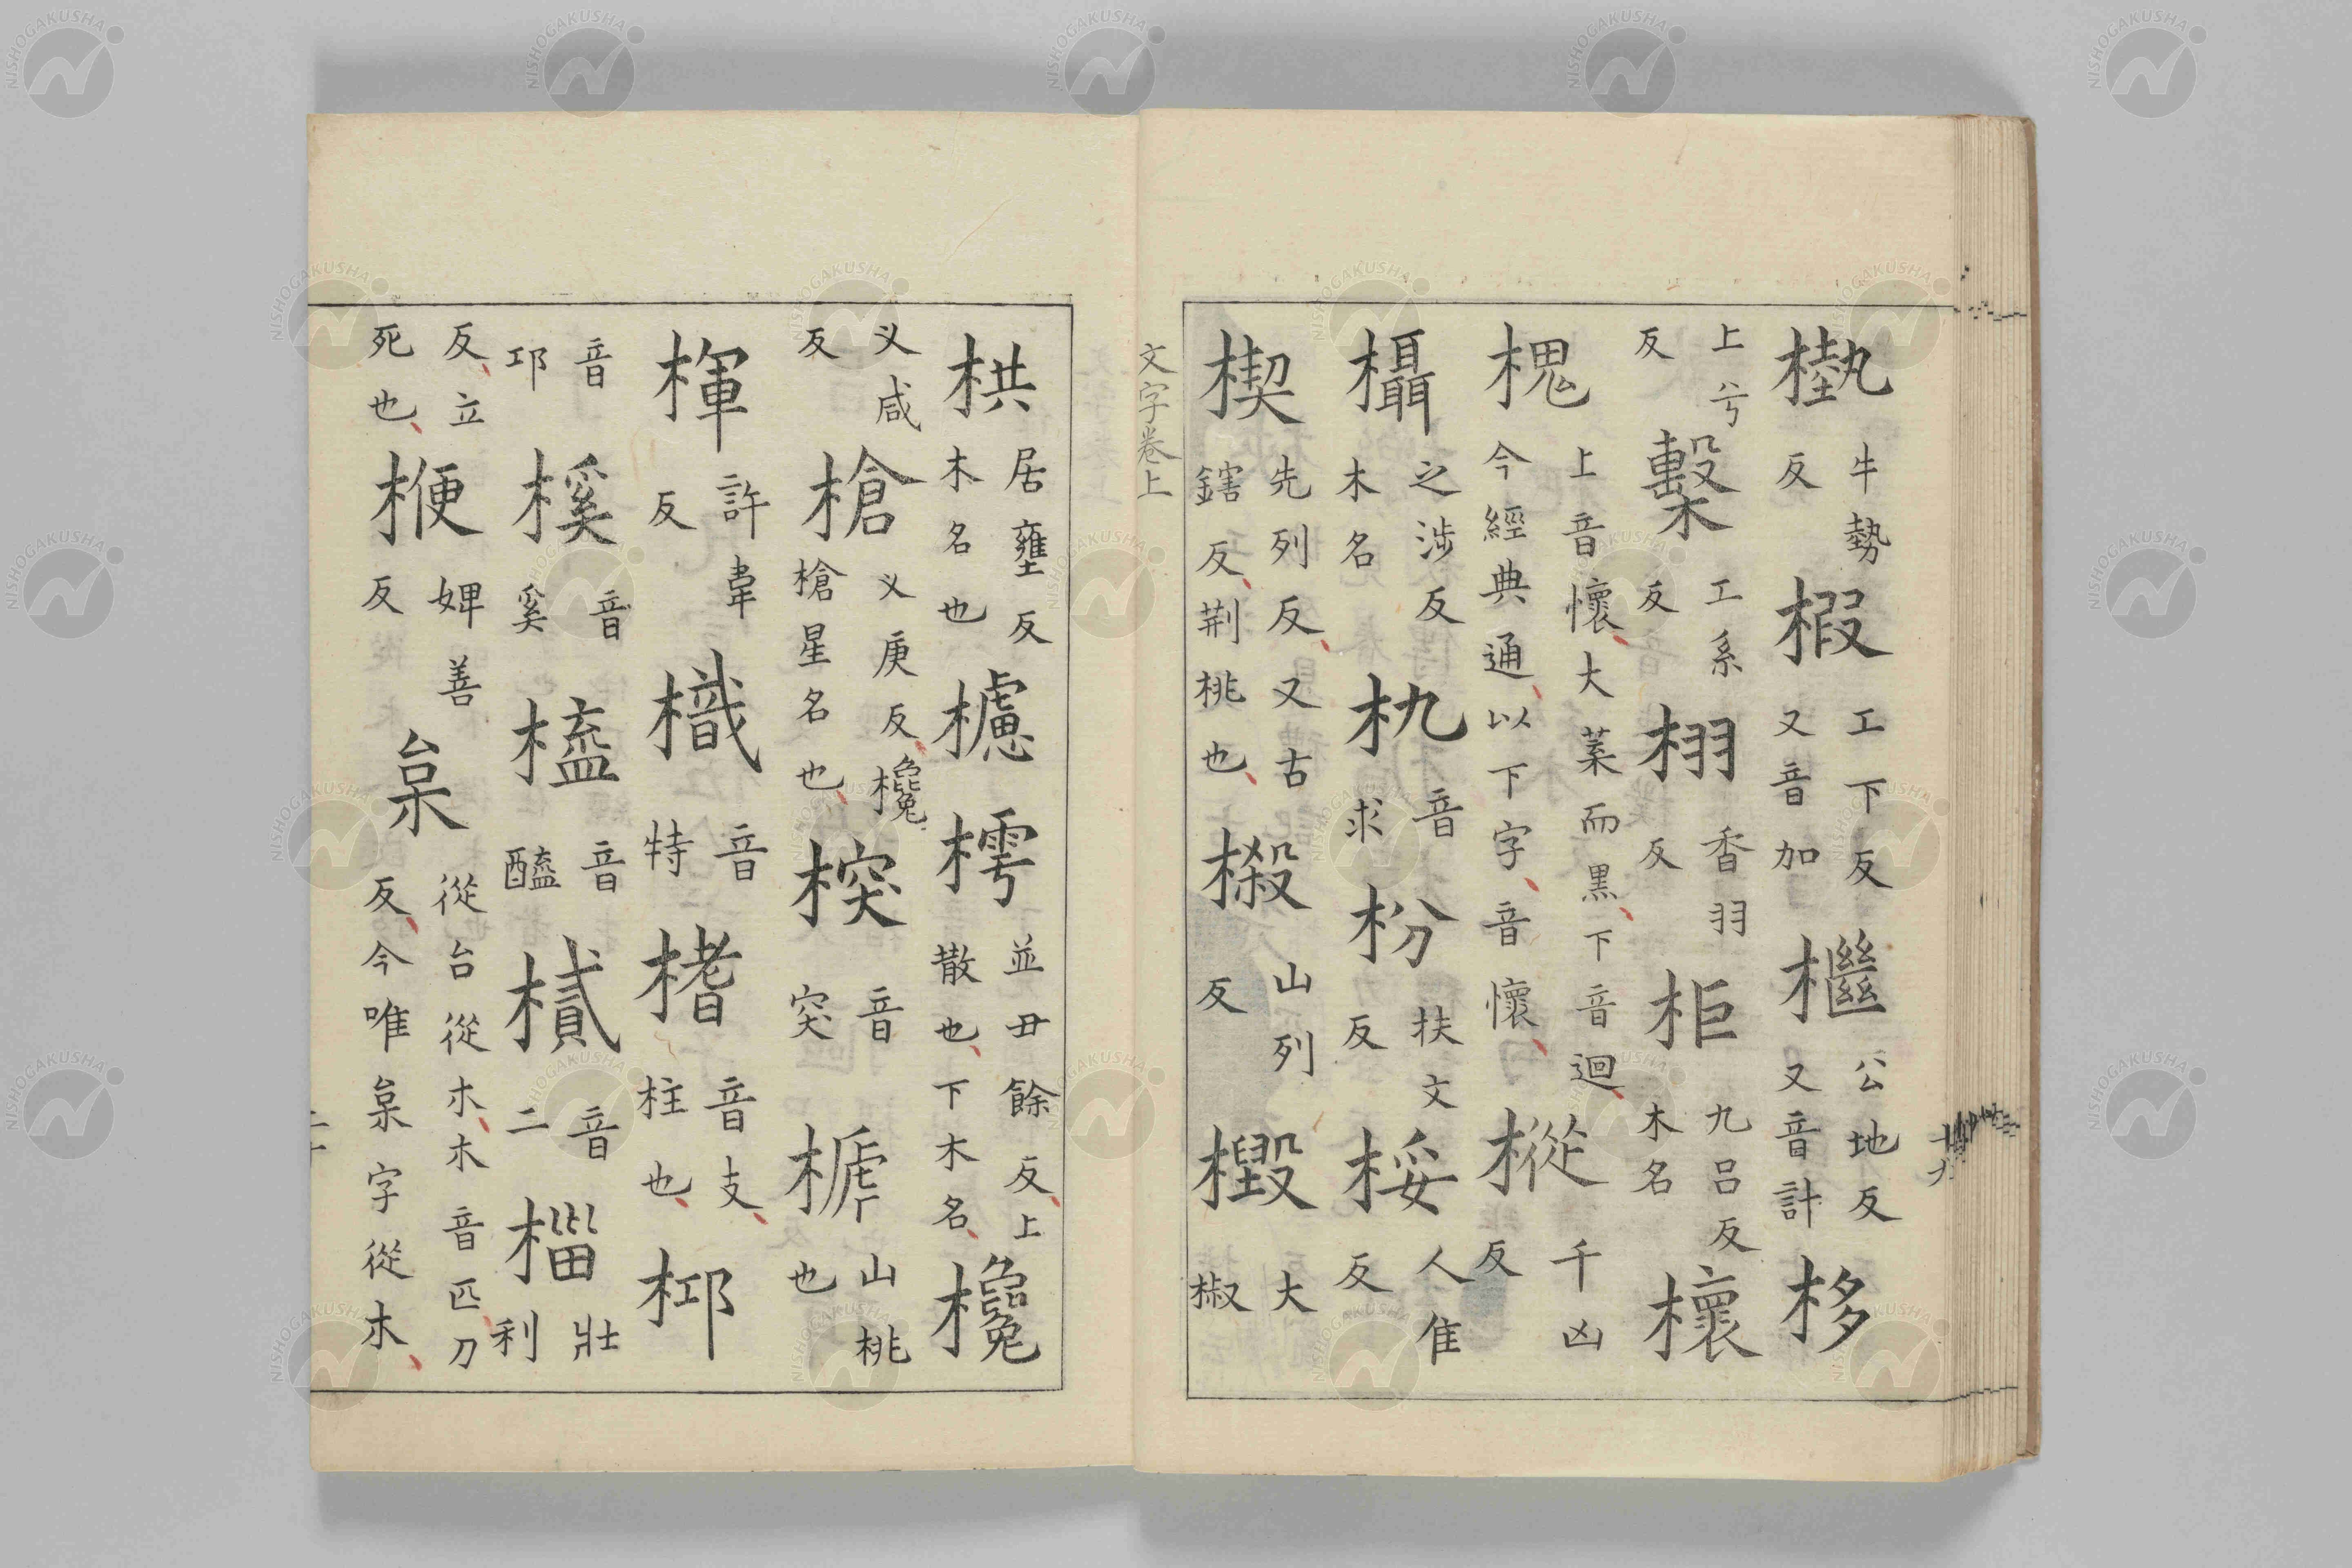 槷牛勢反椵工下反又音加檵公地反又音計栘
上兮反檕工系反栩香羽反柜九呂反木名櫰
槐上音懷大葉而黑下音迴今經典通以下字音懷樅千凶反
欇之涉反木名朹音求枌扶文反桵人隹反
楔先列反又古鎋反荆桃也榝山列反檓大椒
文字卷上
栱居壅反木名也櫖樗並丑餘反上散也下木名欃
义咸反槍义庚反欃槍星名也㮏音突榹山桃也
楎許韋反樴音特榰音支柱也桏
音邛榽音奚音醯樲音二椔壯利
反立死也楩婢善反枲從台從朩朩音匹刀反今唯枲字從朩